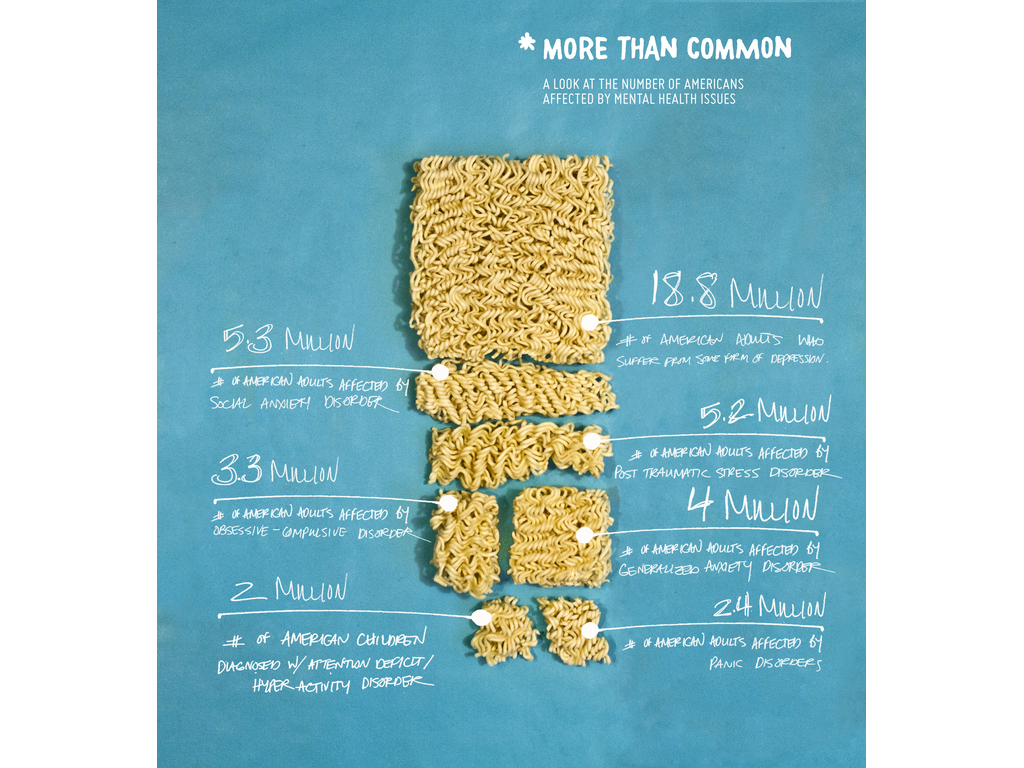 * MORE THAN COMMON
A LOOK AT THE NUMBER OF AMERICANS
AFFECTED BY MENTAL HEALTH ISSUES
18.8 MILLION
# OF AMERICAN ADULTS WHO
SUFFER FROM SOME FORM OF DEPRESSION.
5.3 MILLION
# OF AMERICAN ADULTS AFFECTED BY
SOCIAL ANXIETY DISORDER
5.2 MILLION
# OF AMERICAN ADULTS AFFECTED BY
POST TRAUMATIC STRESS DISORDER
3.3 MILLION
# OF AMERICAN ADULTS AFFECTED BY
OBSESSIVE-COMPULSIVE DISORDER
4 MILLION
# OF AMERICAN ADULTS AFFECTED BY
GENERALIZED ANXIETY DISORDER
2 MILLION
# OF AMERICAN CHILDREN
DIAGNOSED W/ ATTENTION DEFICIT/
HYPER ACTIVITY DISORDER
2.4 MILLION
# OF AMERICAN ADULTS AFFECTED BY
PANIC DISORDERS